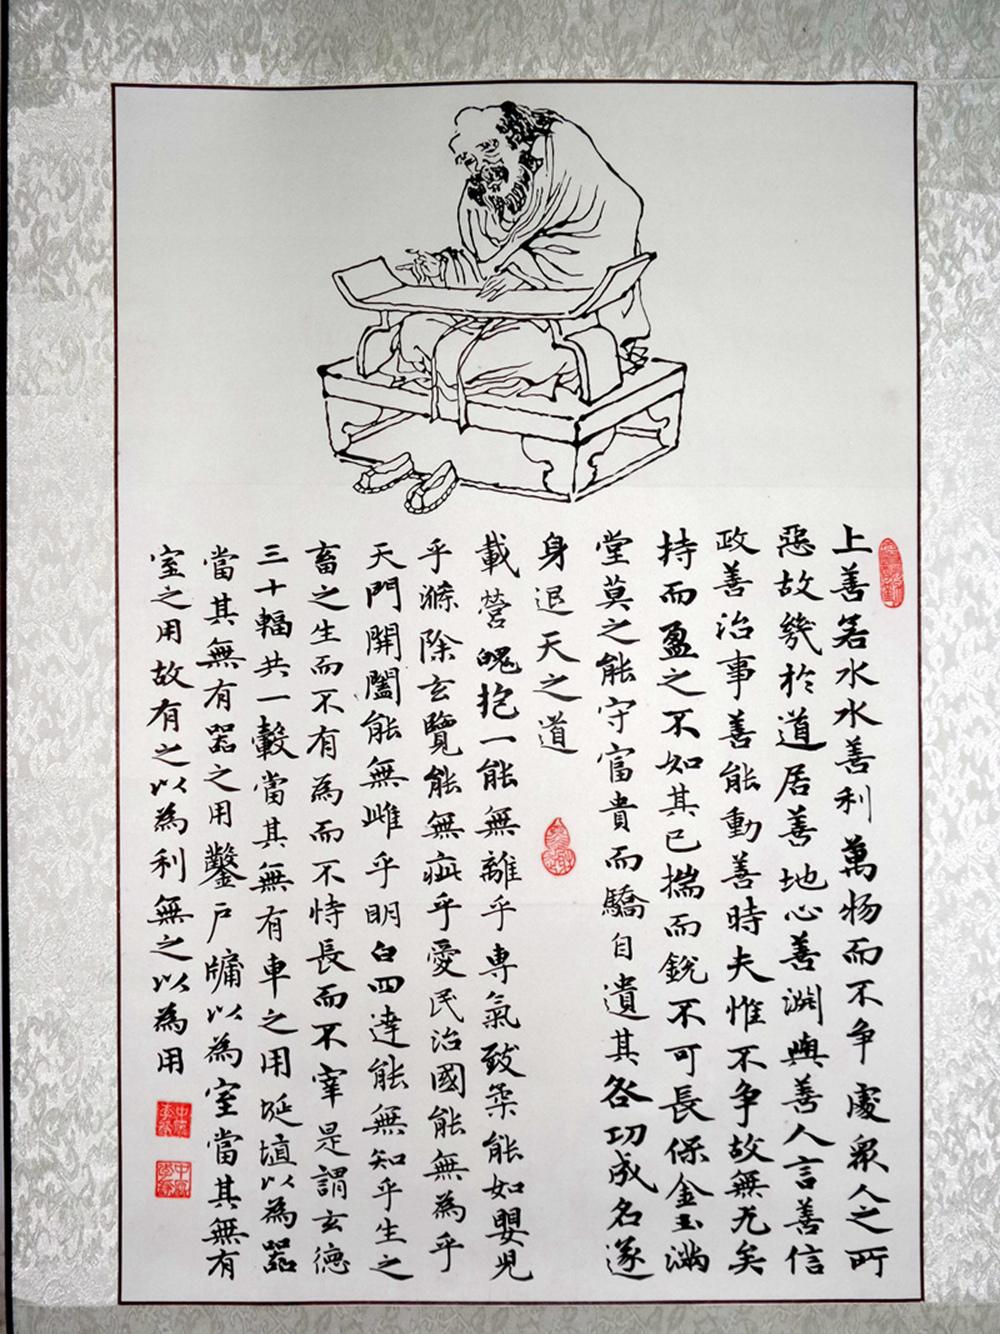 上善若水水善利萬物而不争處衆人之所
惡故幾於道居善地心善淵與善人言善信
政善治事善能動善時夫惟不争故無尤矣
持而盈之不如其已揣而銳不可長保金玉滿
堂莫之能守富貴而驕自遺其咎功成名遂
身退天之道
載營魄抱一能無離乎専氣致柔能如嬰児
乎滌除玄覽能無疵乎愛民治國能無為乎
天門開闔能無雌乎明白四達能無知乎生之
畜之生而不有為而不恃長而不宰是謂玄德
三十輻共一轂當其無有車之用埏埴以為器
當其無有器之用鑿户牖以為室當其無有
室之用故有之以為利無之以為用